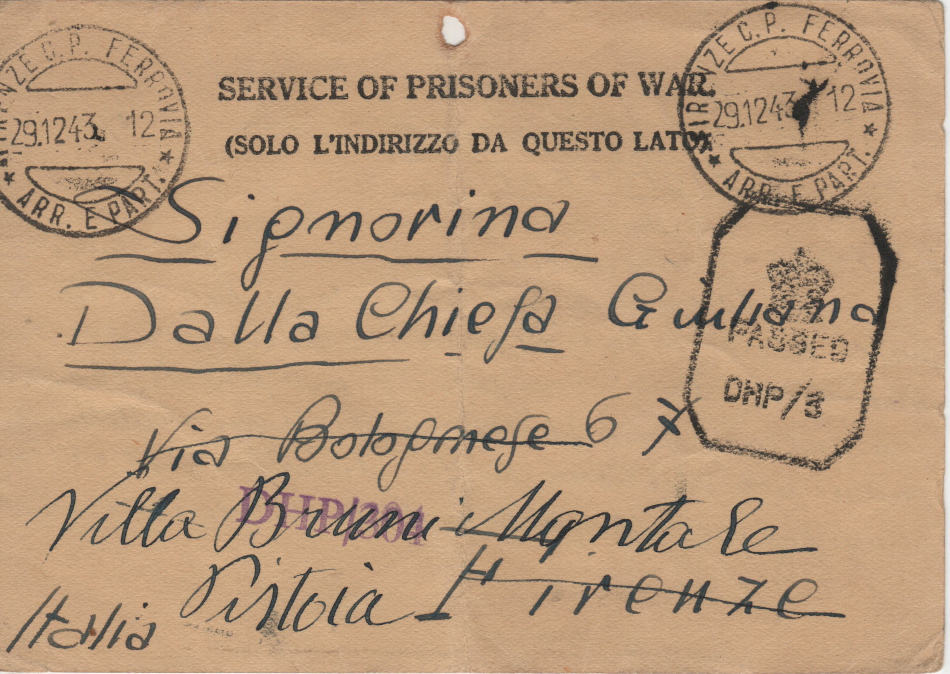 SERVICE OF PRISONERS OF WAR.
(SOLO L'INDIRIZZO DA QUESTO LATO)
FIRENZE C.P. FERROVIA
29.12 43. 12
ARR. E PART.
FIRENZE C.P. FERROVIA
29.12 43. 12
ARR. E PART.
Signorina
Dalla Chiesa Giuliana
PASSED
DHP/3
Via Bolognese 67
DHP/304
Villa Bruni - Montale
Pistoia Firenze
Italia